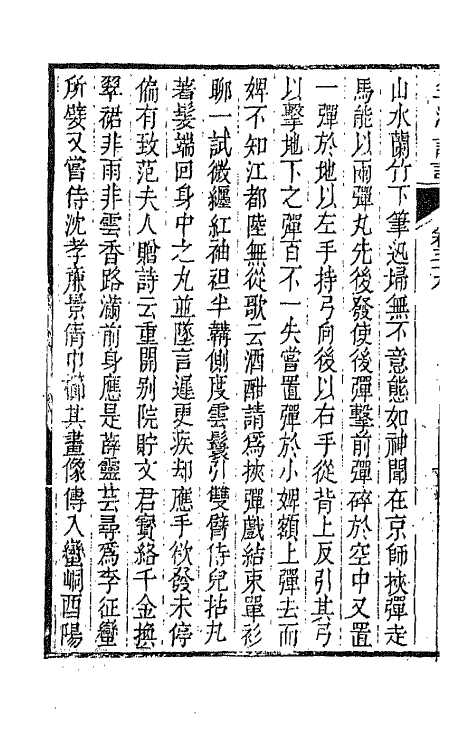 山水蘭竹下筆迅埽無不意態如神聞在京師挾彈走
馬能以兩彈丸先後發使後彈擊前彈碎於空中又置
一彈於地以左手持弓向後以右手從背上反引其弓
以擊地下之彈百不一失嘗置彈於小婢額上彈去而
婢不知江都陸無從歌云酒酣請爲挾彈戲結束單衫
聊一試微纏紅袖袒半韝側度雲鬟引雙臂侍兒拈丸
著髮端回身中之丸並墜言遲更疾却應手欲發未停
偏有致范夫人贈詩云重開别院貯文君寶絡千金換
翠裙非雨非雲香路滿前身應是薛靈芸尋爲李征蠻
所嬖又嘗侍沈孝廉景倩巾櫛其畫像傳入蠻峒酉陽